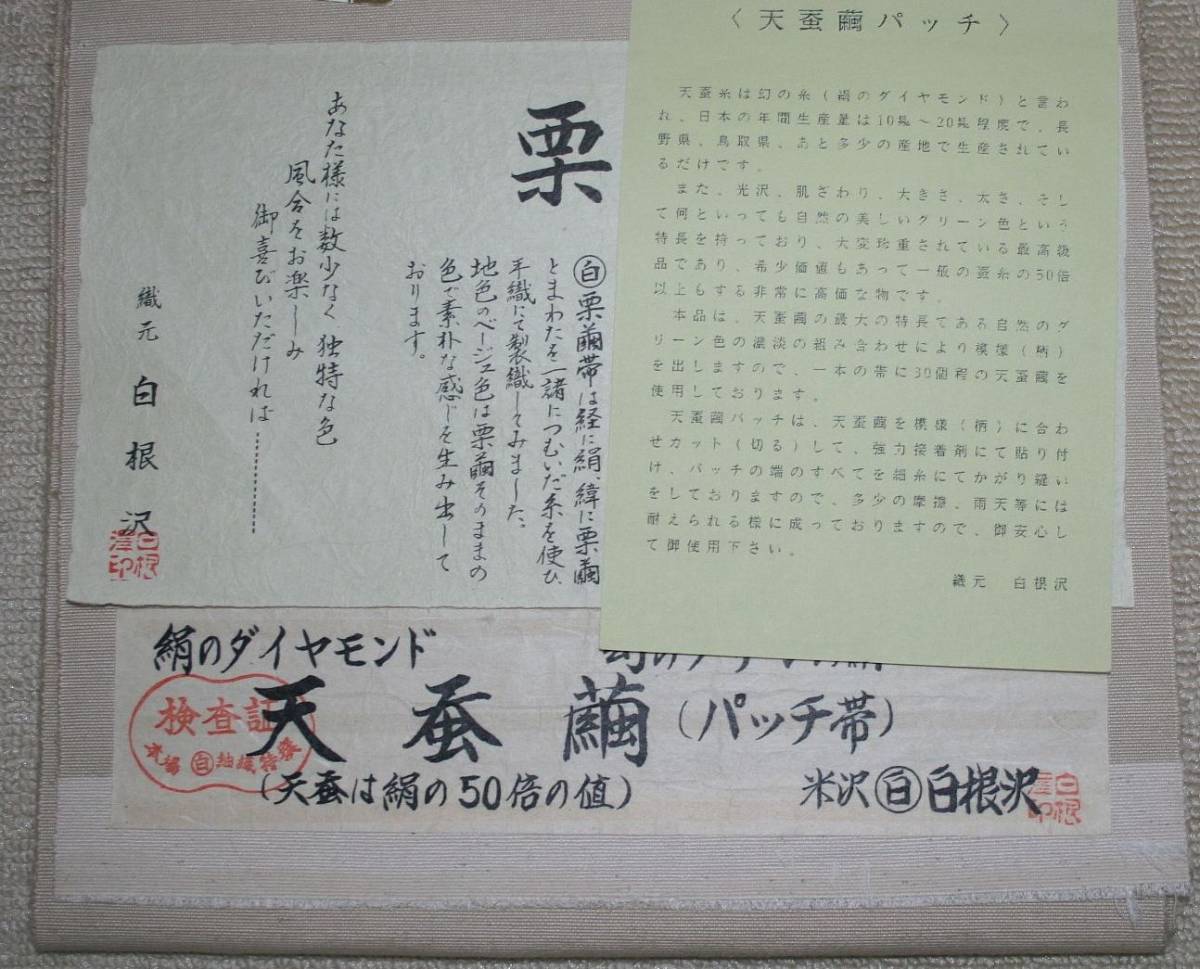 〈天蚕繭パッチ〉
天蚕糸は幻の糸(絹のダイヤモンド)と言わ
れ、日本の年間生産量は10㎏～20㎏程度で、長
野県、鳥取県、あと多少の産地で生産されてい
るだけです。
また、光沢、肌ざわり、大きさ、太さ、そし
て何といっても自然の美しいグリーン色という
特長を持っており、大変珍重されている最高級
品であり、希少価値もあって一般の蚕糸の50倍
以上もする非常に高価な物です。
本品は、天蚕繭の最大の特長である自然のグ
リーン色の濃淡の組み合わせにより模様(柄)
を出しますので、一本の帯に30個程の天蚕繭を
使用しております。
天蚕繭パッチは、天蚕繭を模様(柄)に合わ
せカット(切る)して、強力接着剤にて貼り付
け、パッチの端のすべてを絹糸にてかがり縫い
をしておりますので、多少の摩擦、雨天等には
耐えられる様に成っておりますので、御安心し
て御使用下さい。
織元 白根沢
栗
㊐栗繭帯は経に絹、緯に栗繭
とまわたを一諸につむいだ糸を使ひ
手織にて製織してみました。
地色のベージュ色は栗繭そのままの
色で素朴な感じを生み出して
おります。
あなた様には数少なく独特な色
風合をお楽しみ
御喜びいただければ………
織元 白根沢
白根澤印
絹のダイヤモンド
天蚕繭(パッチ帯)
(天蚕は絹の50倍の値)
米沢㊐白根沢
白根澤印
検査証